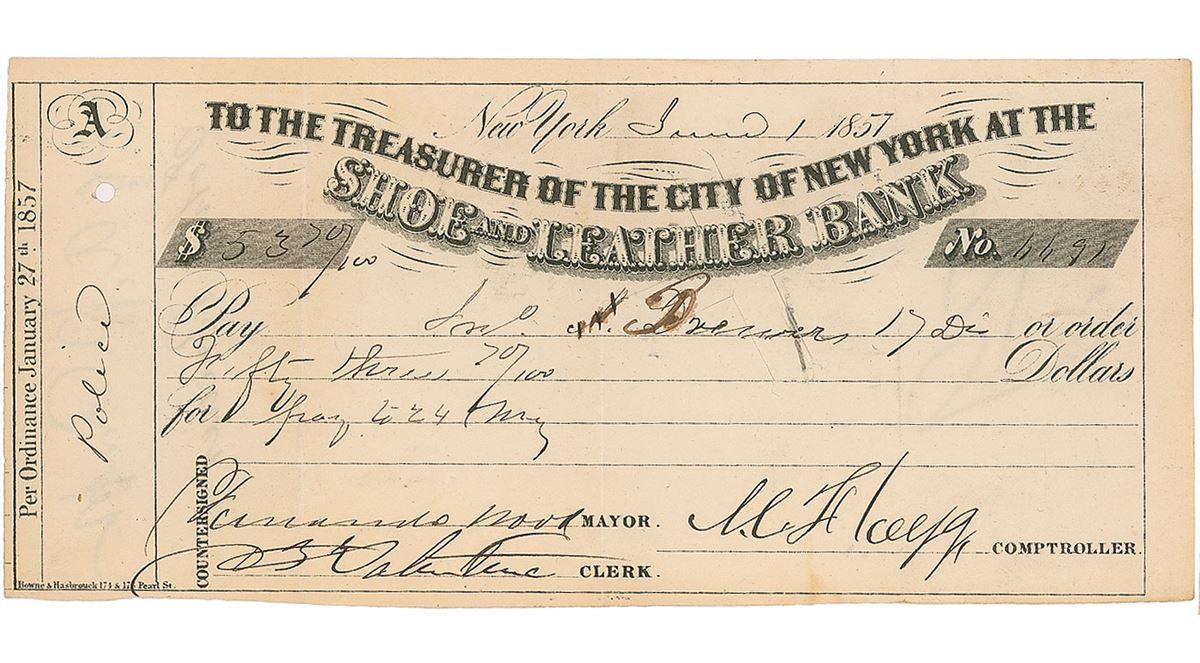 A
Per Ordinance January 27th 1857
Police
New York June 1 1857
TO THE TREASURER OF THE CITY OF NEW YORK AT THE
SHOE AND LEATHER BANK
$ 53 70/100
No. 4491
Pay Jno. Brewer 17 Dis or order
Fifty three 70/100 Dollars
for pay to 24 May
COUNTERSIGNED
Fernando Wood MAYOR.
Valentine CLERK.
COMPTROLLER.
Bowne & Hasbrouck 174 & 176 Pearl St.